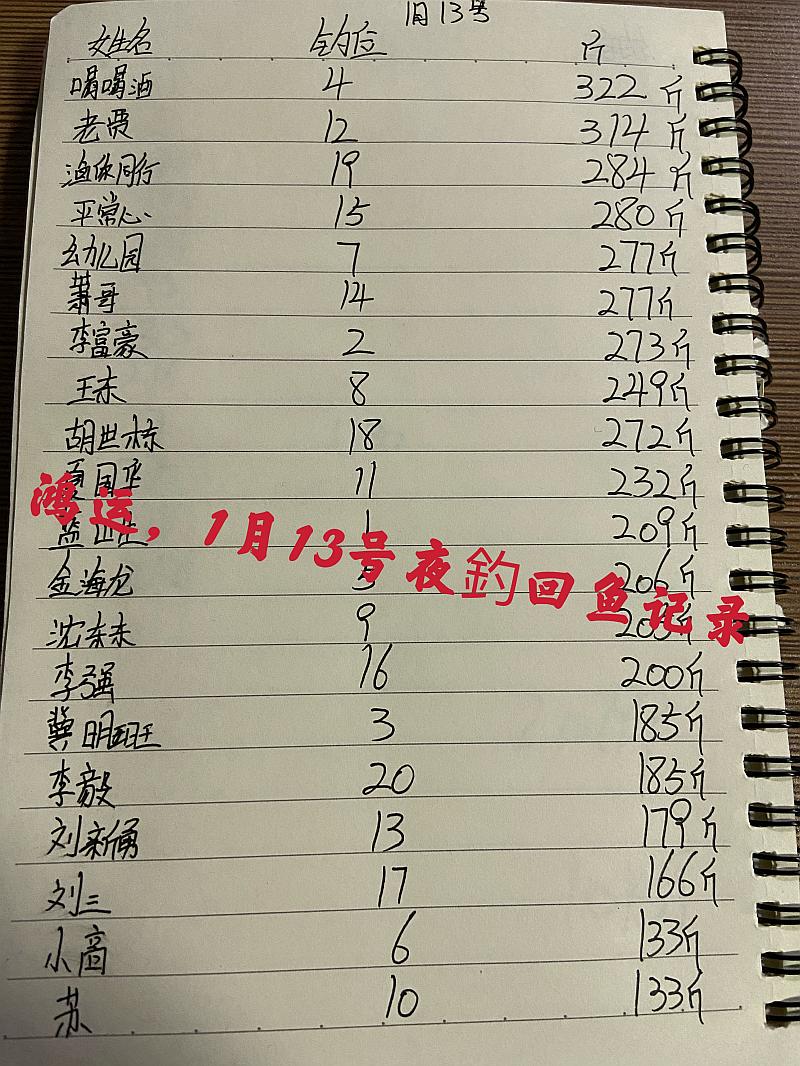 1月13号
姓名 钓位 斤
喝喝酒 4 322斤
老贾 12 314斤
渔你同行 19 284斤
平常心 15 280斤
幼儿园 7 277斤
萧哥 14 277斤
李富豪 2 273斤
王东 8 249斤
胡世栋 18 272斤
夏国 11 232斤
1 209斤
金海龙 5 206斤
鸿运，1月13号夜釣回鱼记录
沈东东 9 斤
李强 16 200斤
冀明旺 3 185斤
李毅 20 185斤
刘新勇 13 179斤
刘三 17 166斤
小高 6 133斤
苏 10 133斤